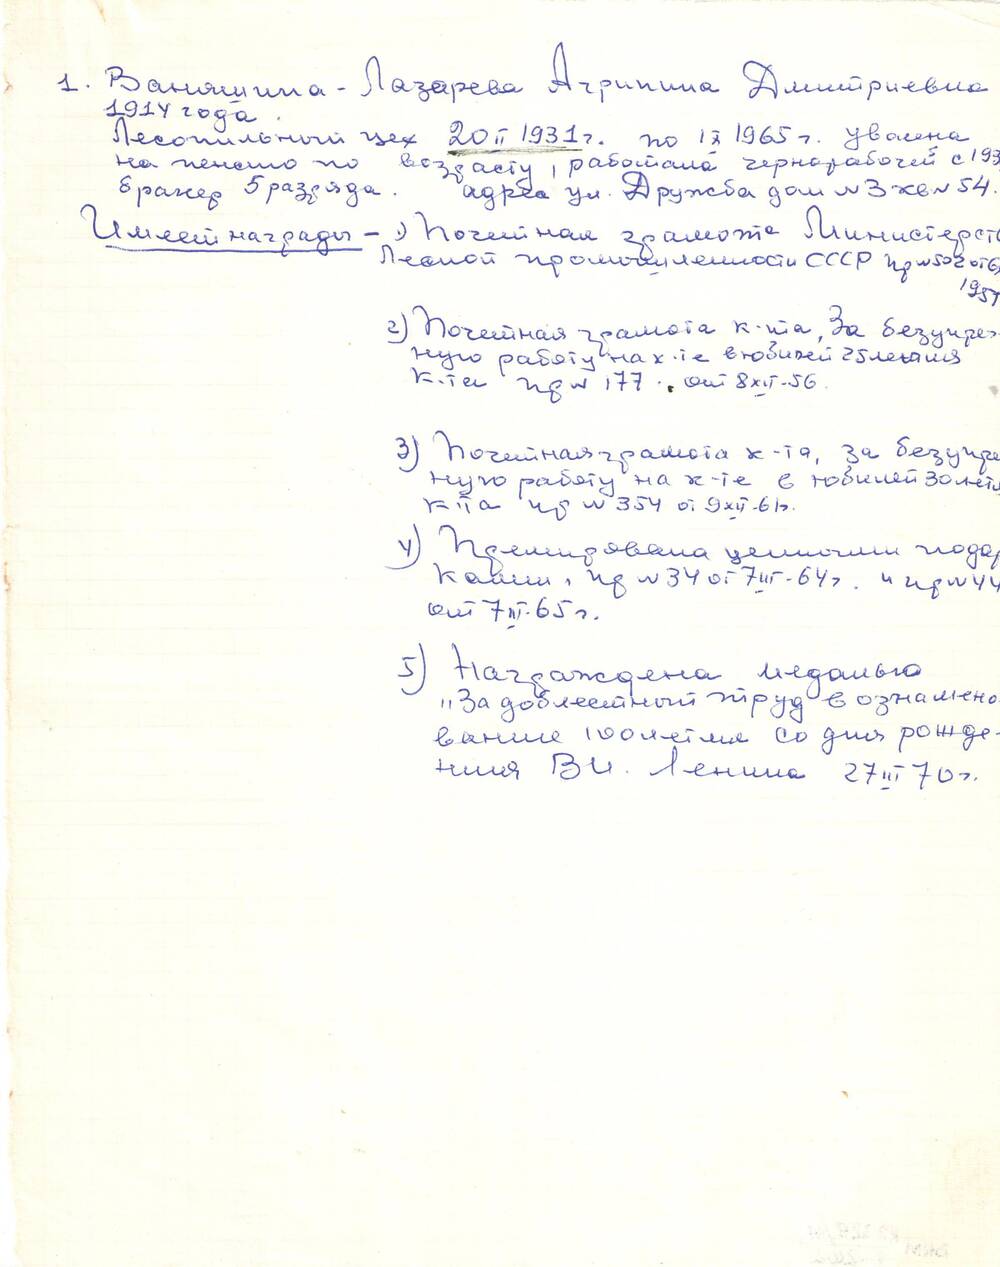 1. Ваняшина - Лазарева Агрипина Дмитриевна
1914 года.
Лесопильный цех 20 II 1931 г. по IX 1965 г. уволена
на пенсию по возрасту, работала чернорабочей с 193
бракер 5 разряда. адрес ул. Дружба дом №3 кв №54.
Имеет награды - 1) Почетная грамота Министерст
Лесной промышленности СССР пр №502 от 6
1951
2) Почетная грамота к-та, За безупре-
ную работу на к-те в юбилей 25летия
к-та пр № 177. от 8 XII-56.
3) Почетная грамота к-та, за безупре
ную работу на к-те в юбилей 30лет
к-та пр №354 от 9 XII-61г.
4) Премирована ценными подар
ками, пр №34 от 7 III-64г. и пр №44
от 7 III-65г.
5) Награждена медалью
"За доблестный труд в ознамено-
вание 100летия со дня рожде-
ния В.И. Ленина 27 III 70г.